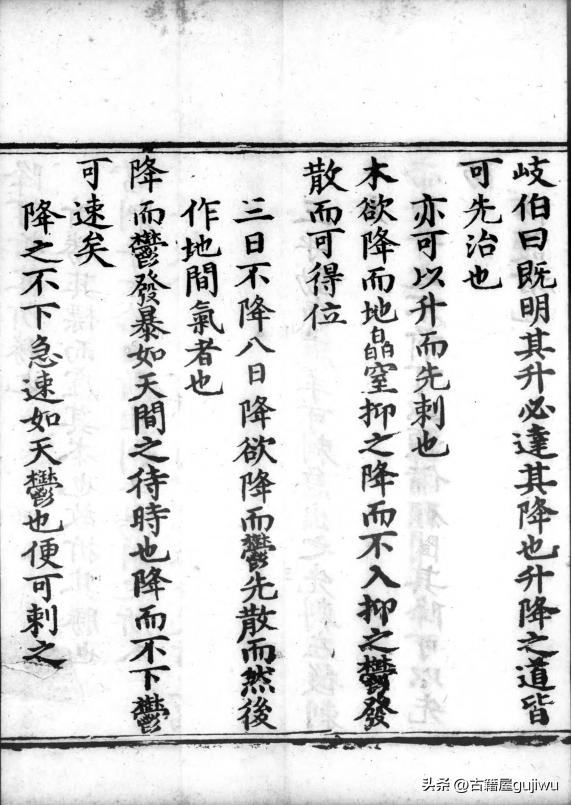 岐伯曰既明其升必達其降也升降之道皆
可先治也
亦可以升而先刺也
木欲降而地皛窒抑之降而不入抑之鬱發
散而可得位
三日不降八日降欲降而鬱先散而然後
作地間氣者也
降而鬱發暴如天間之待時也降而不下鬱
可速矣
降之不下急速如天鬱也便可刺之
头条 @古籍屋gujiwu